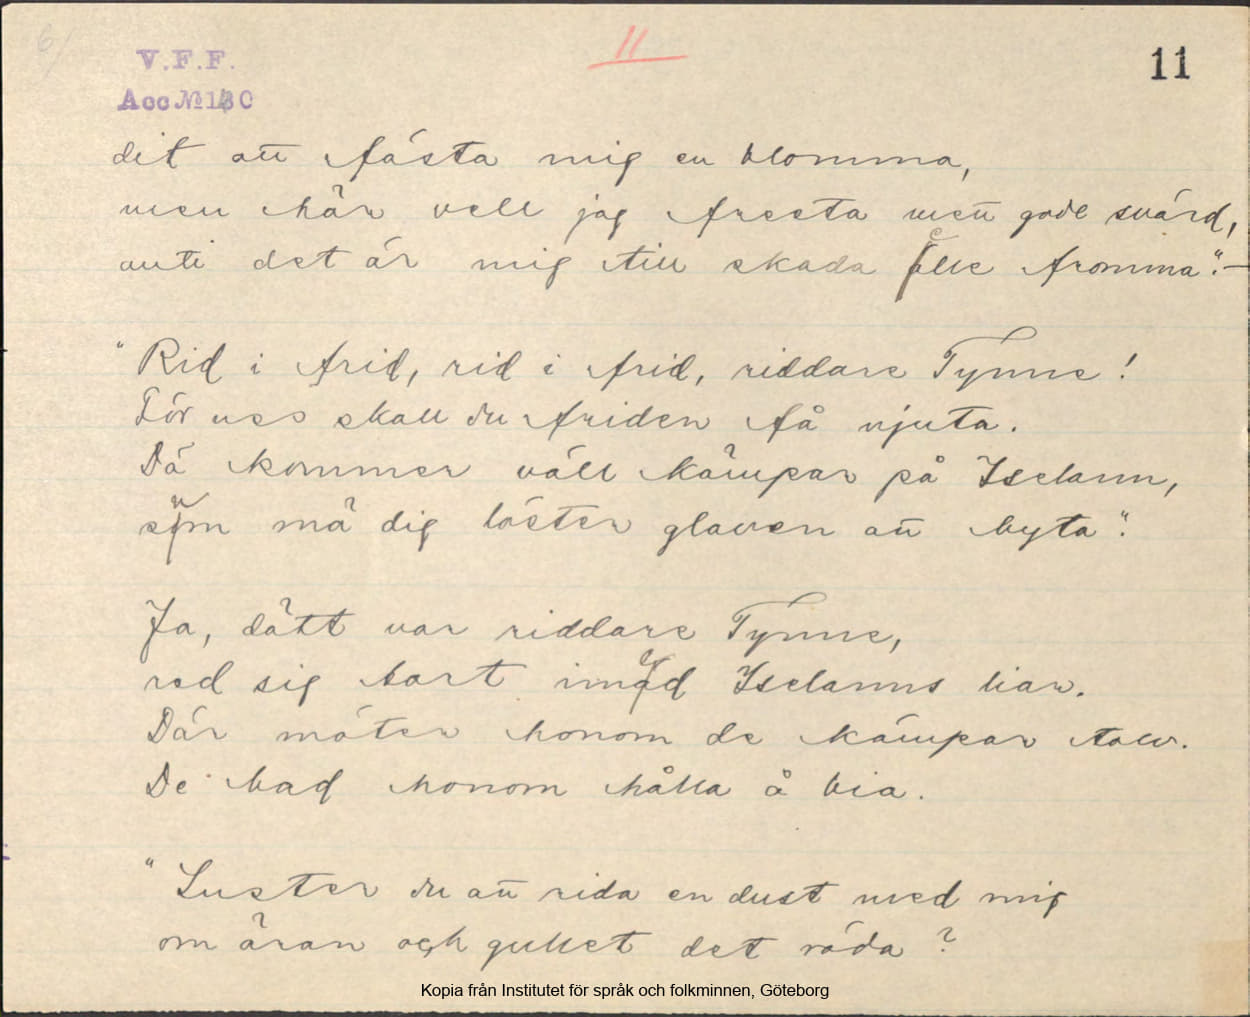 6/
V.F.F.
Acc № 130
11
11
dit att fästa mig en blomma,
men här vell jag fresta mett gode svärd,
anti det är mig till skada elle fromma". —
"Rid i frid, rid i frid, riddare Tynne!
För uss skall du friden få njuta.
Då kommer väll kämpar på Iselann,
som må dig löster glaven att byta".
Ja, dätt var riddare Tynne,
red sig bort imod Iselanns liar.
Där möter honom de kämpar tolv.
De bad honom hålla å bia.
"Luster du att rida en dust med mig
om äran och gullet det röda?
Kopia från Institutet för språk och folkminnen, Göteborg